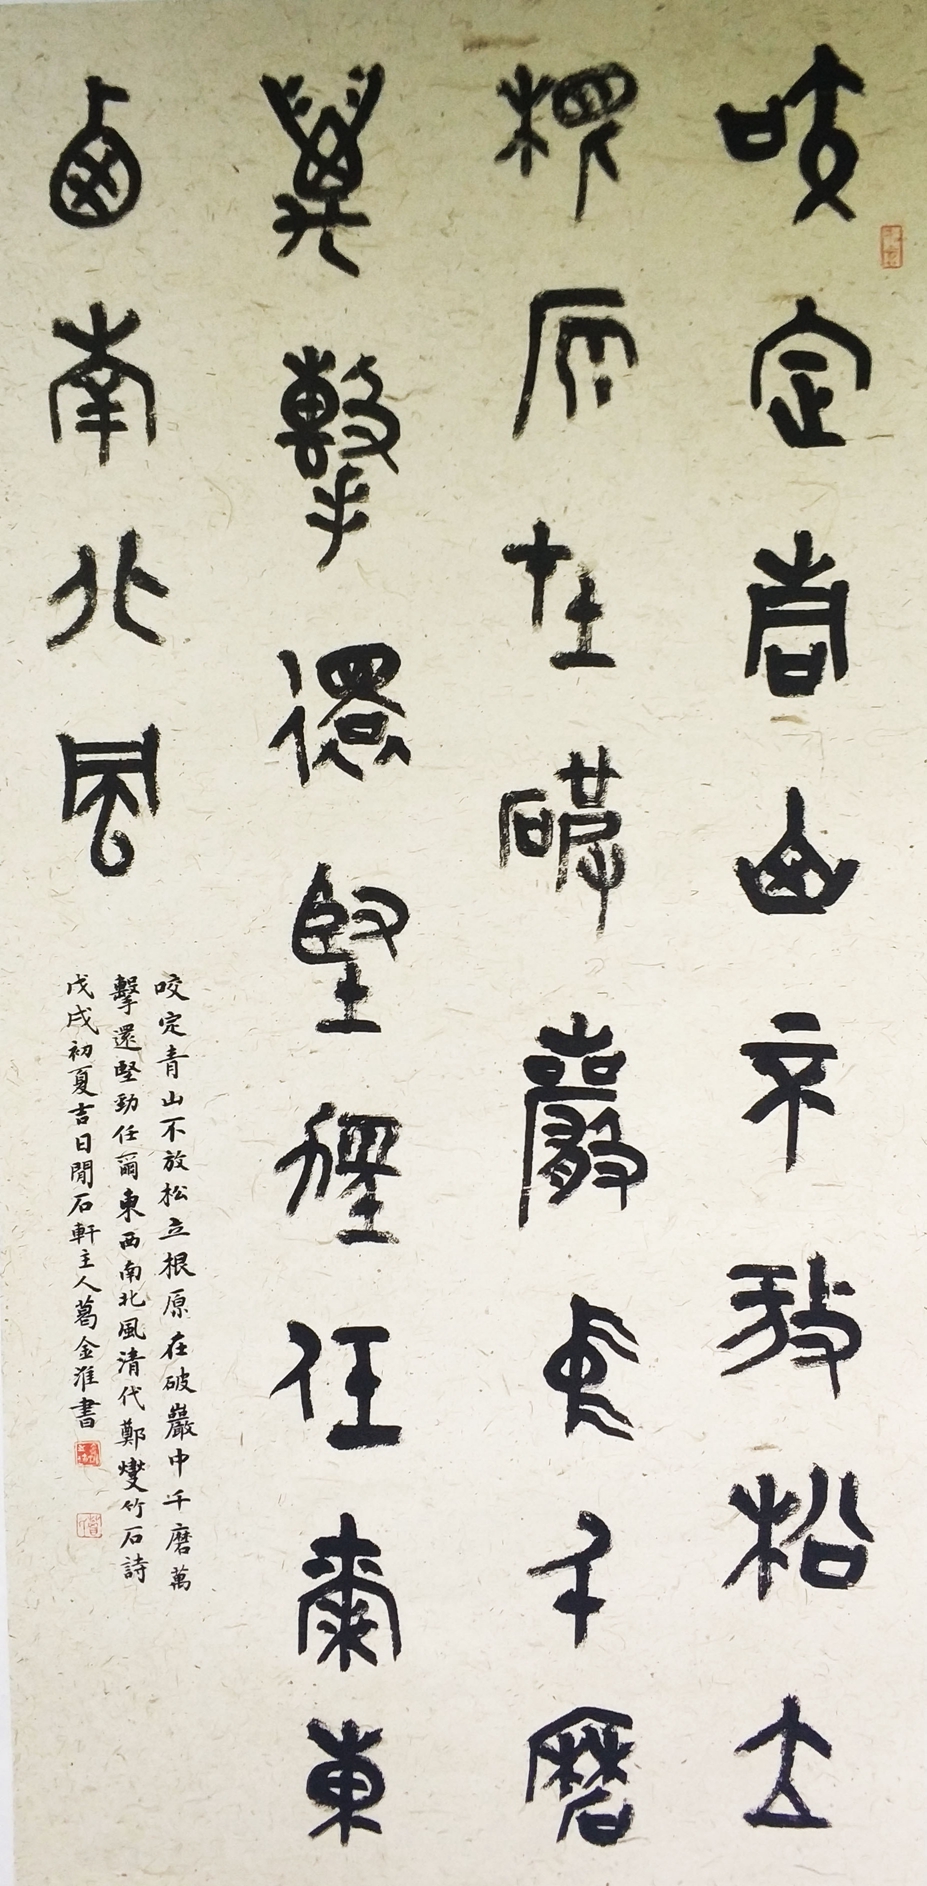 咬定青山不放松立
根原在破巖中千磨
萬擊還堅勁任爾東
西南北風
咬定青山不放松立根原在破巖中千磨萬
擊還堅勁任爾東西南北風清代鄭燮竹石詩
戊戌初夏吉日閒石軒主人葛金淮書